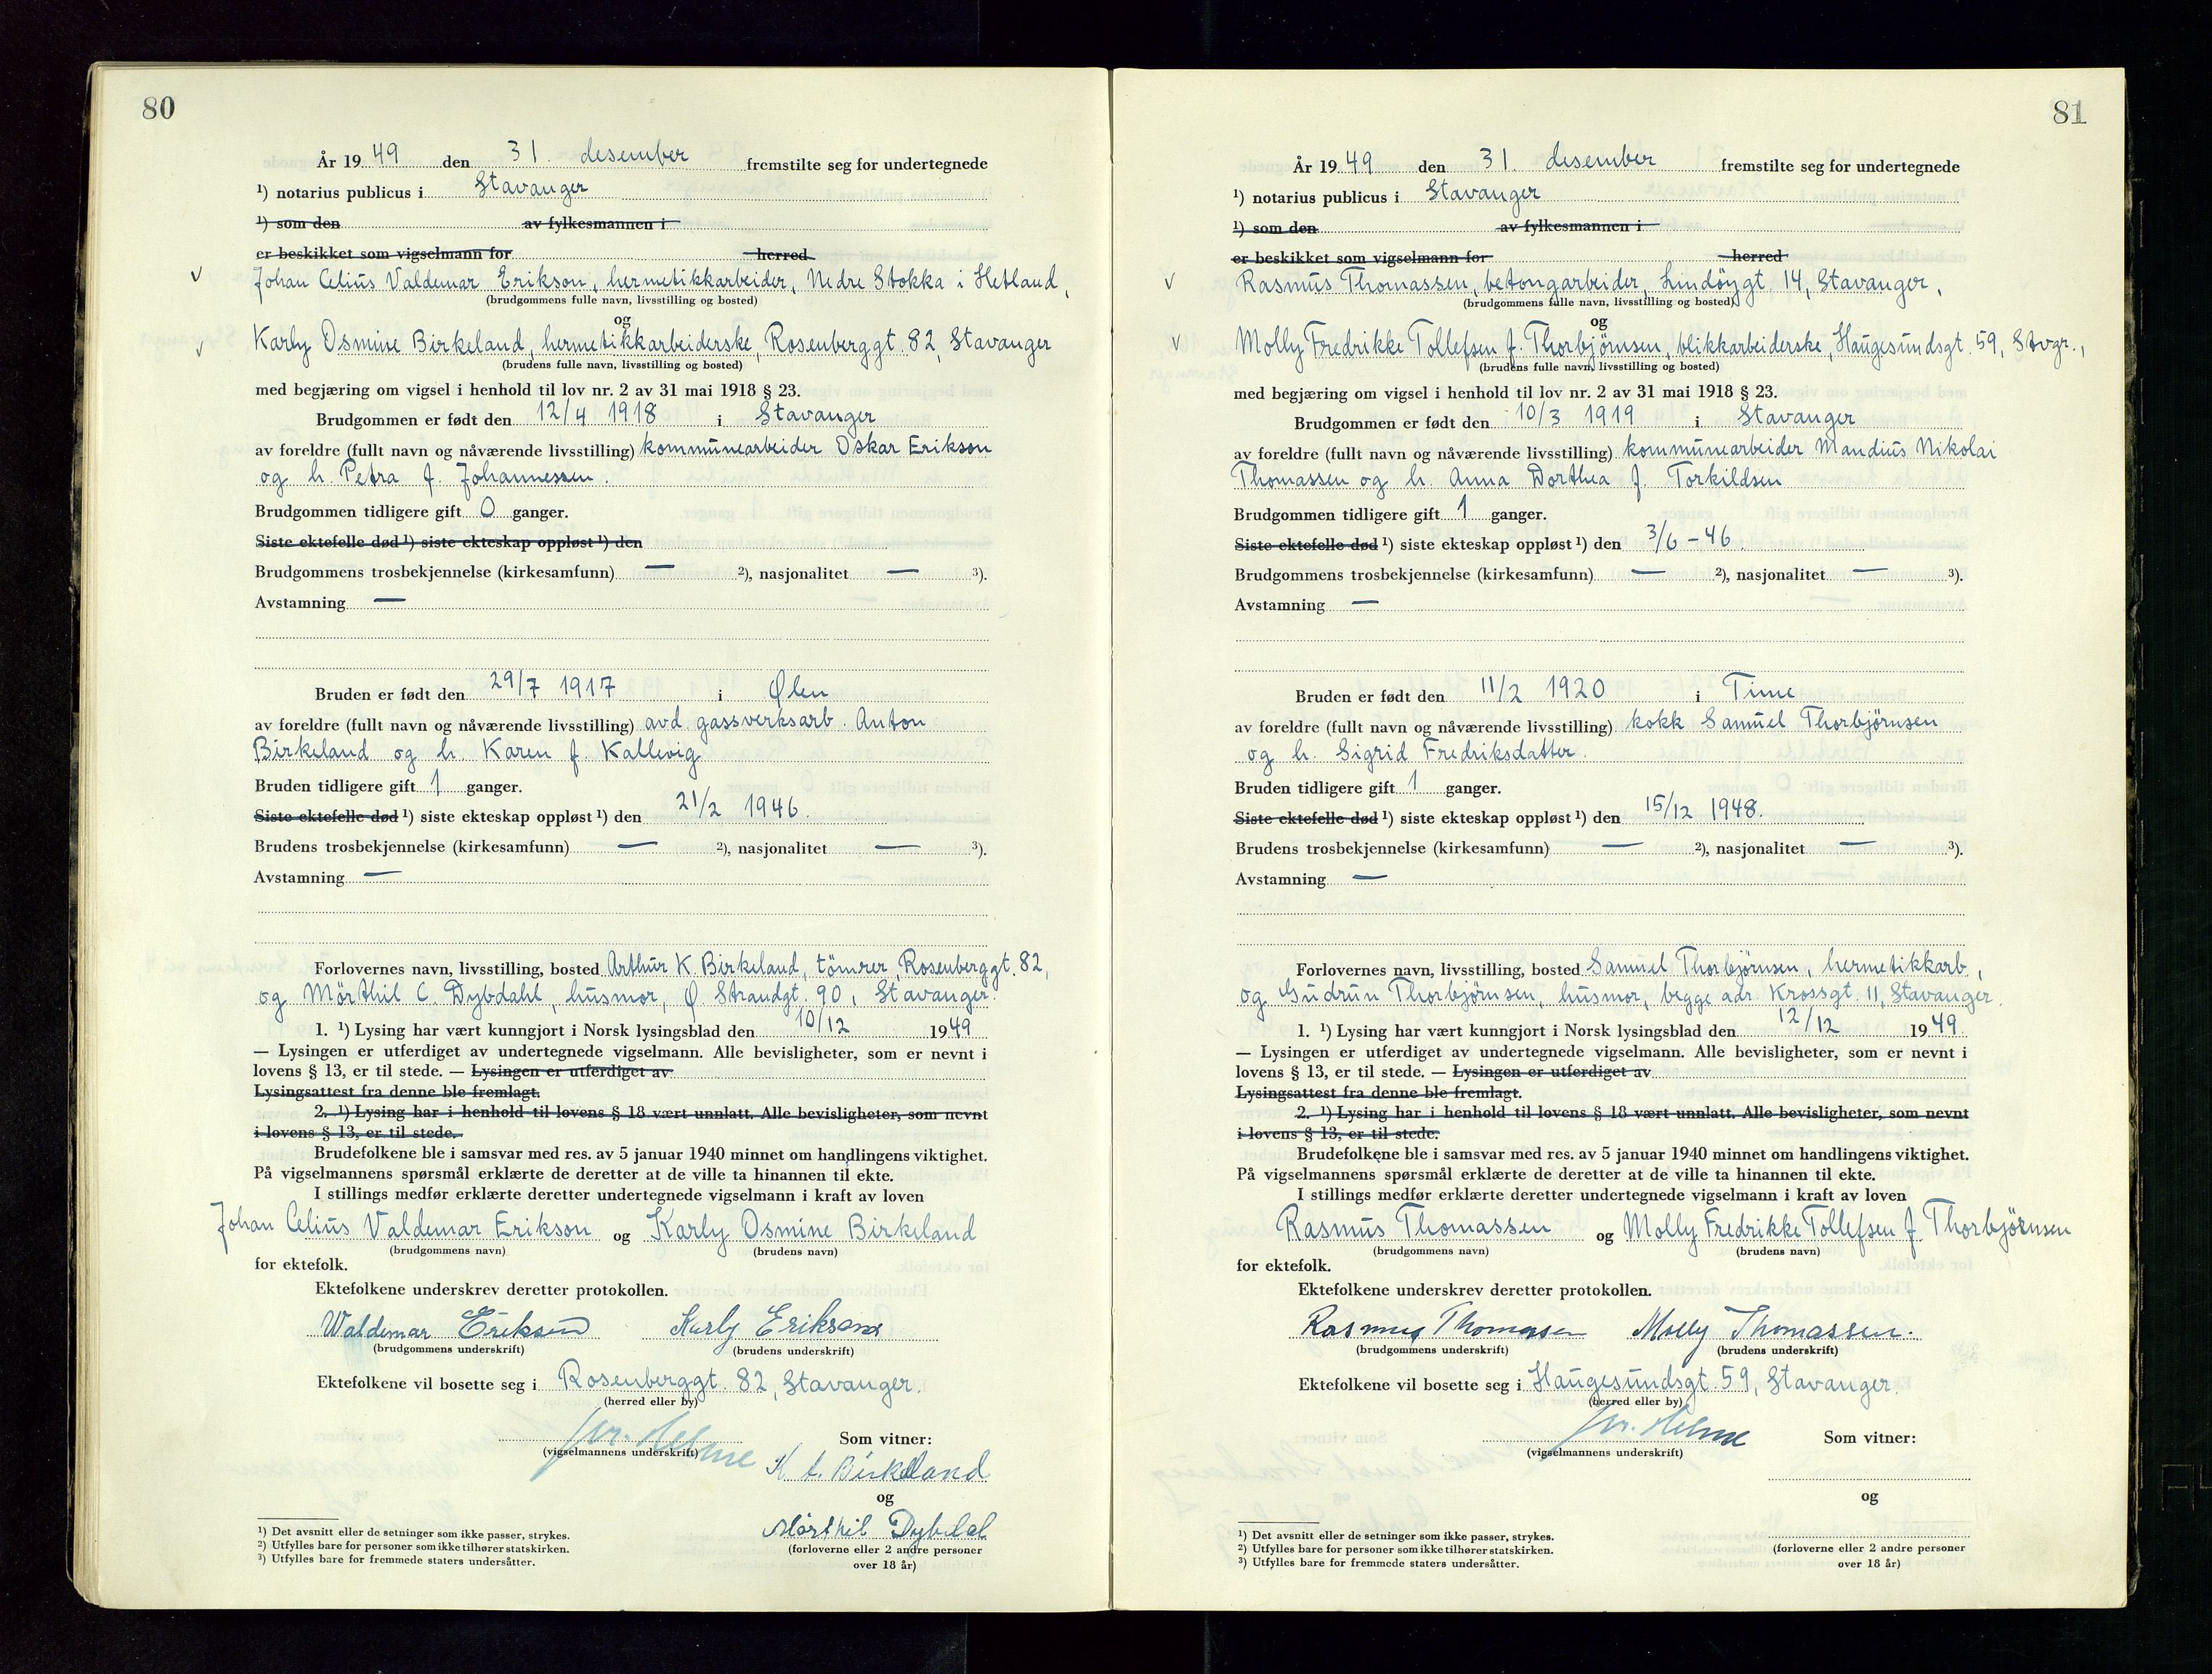 80
År 19 49 den 31. desember fremstilte seg for undertegnede
¹) notarius publicus i Stavanger
¹) som den av fylkesmannen i
er beskikket som vigselmann for herred
Johan Celius Valdemar Erikson, hermetikkarbeider, Nedre Stokka i Hetland,
(brudgommens fulle navn, livsstilling og bosted)
og
Karly Osmine Birkeland, hermetikkarbeiderske, Rosenberggt. 82, Stavanger
(brudens fulle navn, livsstilling og bosted)
med begjæring om vigsel i henhold til lov nr. 2 av 31 mai 1918 § 23.
Brudgommen er født den 12/4 1918 i Stavanger
av foreldre (fullt navn og nåværende livsstilling) kommunearbeider Oskar Erikson
og h. Petra f. Johannessen.
Brudgommen tidligere gift 0 ganger.
Siste ektefelle død ¹) siste ekteskap oppløst ¹) den
Brudgommens trosbekjennelse (kirkesamfunn) — ²), nasjonalitet — ³).
Avstamning —
Bruden er født den 29/7 1917 i Ølen
av foreldre (fullt navn og nåværende livsstilling) avd. gassverksarb. Anton
Birkeland og h. Karen f. Kallevig
Bruden tidligere gift 1 ganger.
Siste ektefelle død ¹) siste ekteskap oppløst ¹) den 21/2 1946.
Brudens trosbekjennelse (kirkesamfunn) — ²), nasjonalitet — ³).
Avstamning —
Forlovernes navn, livsstilling, bosted Arthur K. Birkeland, tömrer, Rosenberggt. 82,
og Mörthil C. Dybdahl, husmor, Ø. Strandgt. 90, Stavanger.
1. ¹) Lysing har vært kunngjort i Norsk lysingsblad den 10/12 19 49
— Lysingen er utferdiget av undertegnede vigselmann. Alle bevisligheter, som er nevnt i
lovens § 13, er til stede. — Lysingen er utferdiget av
Lysingsattest fra denne ble fremlagt.
2. ¹) Lysing har i henhold til lovens § 18 vært unnlatt. Alle bevisligheter, som nevnt
i lovens § 13, er til stede.
Brudefolkene ble i samsvar med res. av 5 januar 1940 minnet om handlingens viktighet.
På vigselmannens spørsmål erklærte de deretter at de ville ta hinannen til ekte.
I stillings medfør erklærte deretter undertegnede vigselmann i kraft av loven
Johan Celius Valdemar Erikson og Karly Osmine Birkeland
(brudgommens navn) (brudens navn)
for ektefolk.
Ektefolkene underskrev deretter protokollen.
Waldemar Eriksen Karly Eriksen
(brudgommens underskrift) (brudens underskrift)
Ektefolkene vil bosette seg i Rosenberggt. 82, Stavanger.
(herred eller by)
Som vitner:
(vigselmannens underskrift)
Birkeland
og
Mörthil Dybdal
(forloverne eller 2 andre personer
over 18 år)
¹) Det avsnitt eller de setninger som ikke passer, strykes.
²) Utfylles bare for personer som ikke tilhører statskirken.
³) Utfylles bare for fremmede staters undersåtter.
81
År 19 49 den 31. desember fremstilte seg for undertegnede
¹) notarius publicus i Stavanger
¹) som den av fylkesmannen i
er beskikket som vigselmann for herred
Rasmus Thomassen, betongarbeider, Lindöygt. 14, Stavanger,
(brudgommens fulle navn, livsstilling og bosted)
og
Molly Fredrikke Tollefsen f. Thorbjörnsen, blikkarbeiderske, Haugesundsgt. 59, Stvgr.,
(brudens fulle navn, livsstilling og bosted)
med begjæring om vigsel i henhold til lov nr. 2 av 31 mai 1918 § 23.
Brudgommen er født den 10/3 1919 i Stavanger
av foreldre (fullt navn og nåværende livsstilling) kommunearbeider Mandius Nikolai
Thomassen og h. Anna Dorthea f. Torkildsen
Brudgommen tidligere gift 1 ganger.
Siste ektefelle død ¹) siste ekteskap oppløst ¹) den 3/6 - 46.
Brudgommens trosbekjennelse (kirkesamfunn) — ²), nasjonalitet — ³).
Avstamning —
Bruden er født den 11/2 1920 i Time
av foreldre (fullt navn og nåværende livsstilling) kokk Samuel Thorbjörnsen
og h. Sigrid Fredriksdatter.
Bruden tidligere gift 1 ganger.
Siste ektefelle død ¹) siste ekteskap oppløst ¹) den 15/12 1948.
Brudens trosbekjennelse (kirkesamfunn) — ²), nasjonalitet — ³).
Avstamning —
Forlovernes navn, livsstilling, bosted Samuel Thorbjörnsen, hermetikkarb,
og Gudrun Thorbjörnsen, husmor, begge adr. Krossgt. 11, Stavanger.
1. ¹) Lysing har vært kunngjort i Norsk lysingsblad den 12/12 19 49.
— Lysingen er utferdiget av undertegnede vigselmann. Alle bevisligheter, som er nevnt i
lovens § 13, er til stede. — Lysingen er utferdiget av
Lysingsattest fra denne ble fremlagt.
2. ¹) Lysing har i henhold til lovens § 18 vært unnlatt. Alle bevisligheter, som nevnt
i lovens § 13, er til stede.
Brudefolkene ble i samsvar med res. av 5 januar 1940 minnet om handlingens viktighet.
På vigselmannens spørsmål erklærte de deretter at de ville ta hinannen til ekte.
I stillings medfør erklærte deretter undertegnede vigselmann i kraft av loven
Rasmus Thomassen og Molly Fredrikke Tollefsen f. Thorbjörnsen
(brudgommens navn) (brudens navn)
for ektefolk.
Ektefolkene underskrev deretter protokollen.
Rasmus Thomasen Molly Thomassen.
(brudgommens underskrift) (brudens underskrift)
Ektefolkene vil bosette seg i Haugesundsgt. 59, Stavanger.
(herred eller by)
Som vitner:
(vigselmannens underskrift)
og
(forloverne eller 2 andre personer
over 18 år)
¹) Det avsnitt eller de setninger som ikke passer, strykes.
²) Utfylles bare for personer som ikke tilhører statskirken.
³) Utfylles bare for fremmede staters undersåtter.